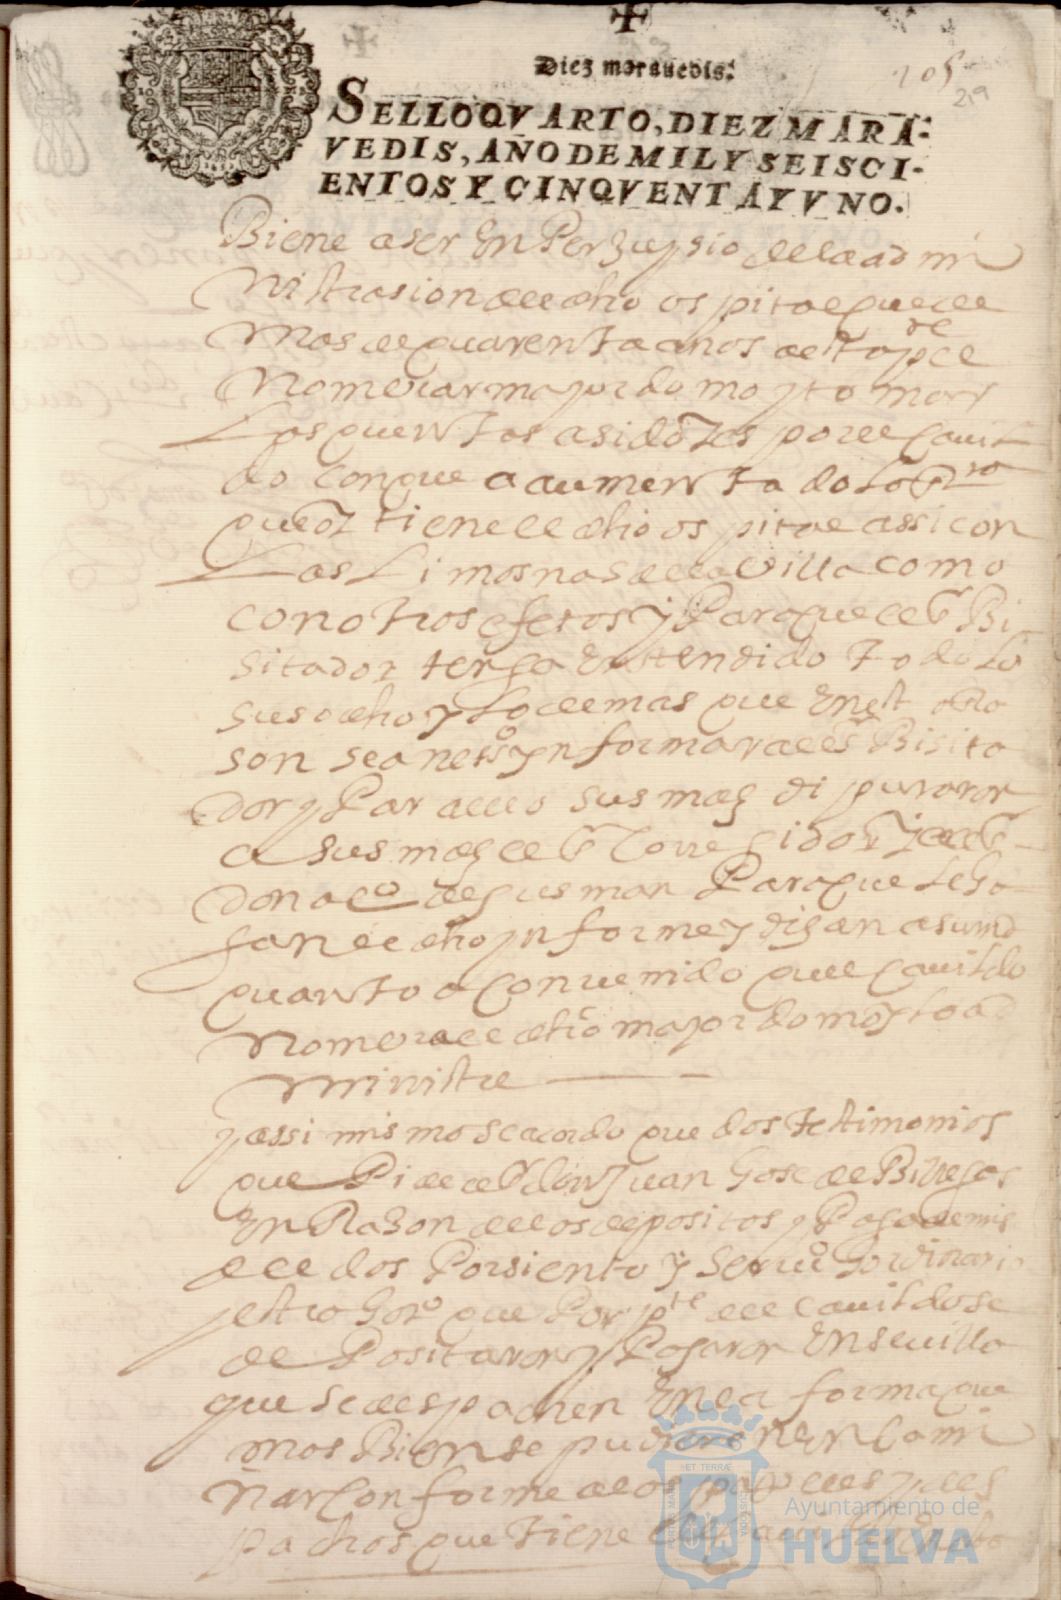 Diez marauedis.
105
29
SELLO QVARTO, DIEZ MARA-
VEDIS, AÑO DE MIL Y SEISCI-
ENTOS Y CINQVENTA Y VNO.
Biene a ser En Perjuysio de la ad mi
nistrasion del dho ospital que de
mas de quarenta años a esta pte
Nombrar mayordomo y tomar
Las quentas a sido es por el Cauil
do con que a aumentado lo
que oy tiene el dho ospital assi con
Las Limosnas de la Villa como
con otros efetos y Para que el sr Bi
sitador tenga Entendido todo Lo
susodho y Lo demas que En esta
son sea neso ynformar al sr Bisita
dor y Para ello sus mds diputaron
a sus mds el sr Corregidor y el sr
don alo de gusman Para que Le ha
gan el dho ynforme y digan a su md
quanto a conuenido que el Cauildo
Nombra el dho mayordomo y Lo ad
ministre
y assi mismo se acordo que dos testimonios
que Pide el sr don Juan Jose de Billegas
En Razon de los depositos y Paga de mis
del dos Porsiento y seruo hordinario
y estrahoro que Por pte del Cauildo se
de Positaron y Pagaron En seuilla
que se despachen En la forma que
mas Bien se pudieren En Cami
ñar Conforme a los papeles y des
pachos que tiene
ET TERRÆ
CUSTODIA
Ayuntamiento de
HUELVA